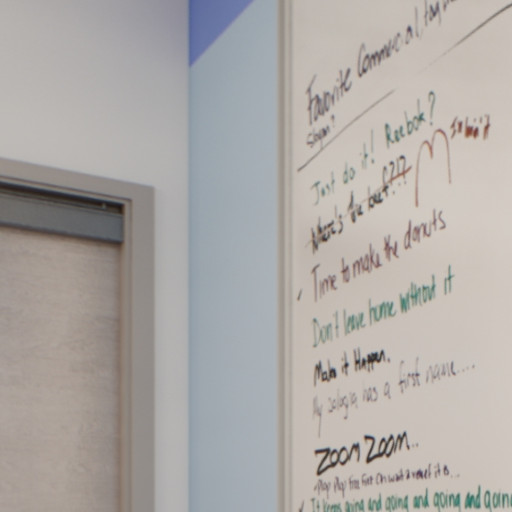 Favorite Commercial, tag
Slogan?
Just do it! Reebok?
Where's the beef?!?
M I'm lovin' it
Time to make the donuts
Don't leave home without it
Make it Happen.
My bologna has a first name....
ZOOM ZOOM..
Plop Plop Fizz Fizz Oh what a relief it is...
It keeps going and going and going and going